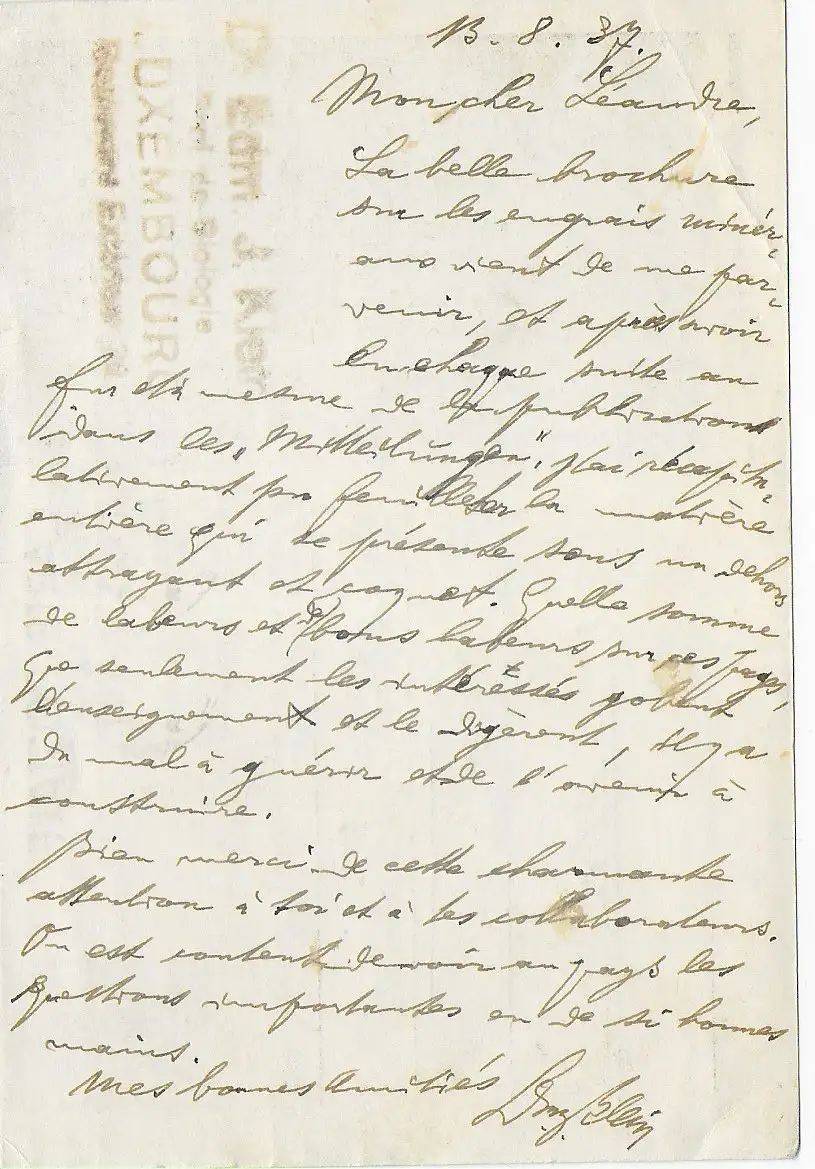 13. 8. 37.
Mon cher Léandre,
La belle brochure
sur les engrais minér-
aux vient de me par-
venir, et après avoir
lu chaque suite au
fur et à mesure de la publication
dans les „Mitteilungen", j'ai récapitu-
lativement pu feuilleter la matière
entière qui se présente sous un dehors
attrayant et coquet. Quelle somme
de labeurs et de bons labeurs sur ces pages,
Que seulement les intéressés gobent
l'enseignement et le digèrent, il y a
du mal à guérir et de l'avenir à
construire.
Bien merci de cette charmante
attention à toi et à tes collaborateurs.
On est content de voir au pays les
questions importantes en de si bonnes
mains.
Mes bonnes Amitiés
Edm. J. Klein
Dr Edm. J. Klein
Prof. de Biologie
LUXEMBOURG